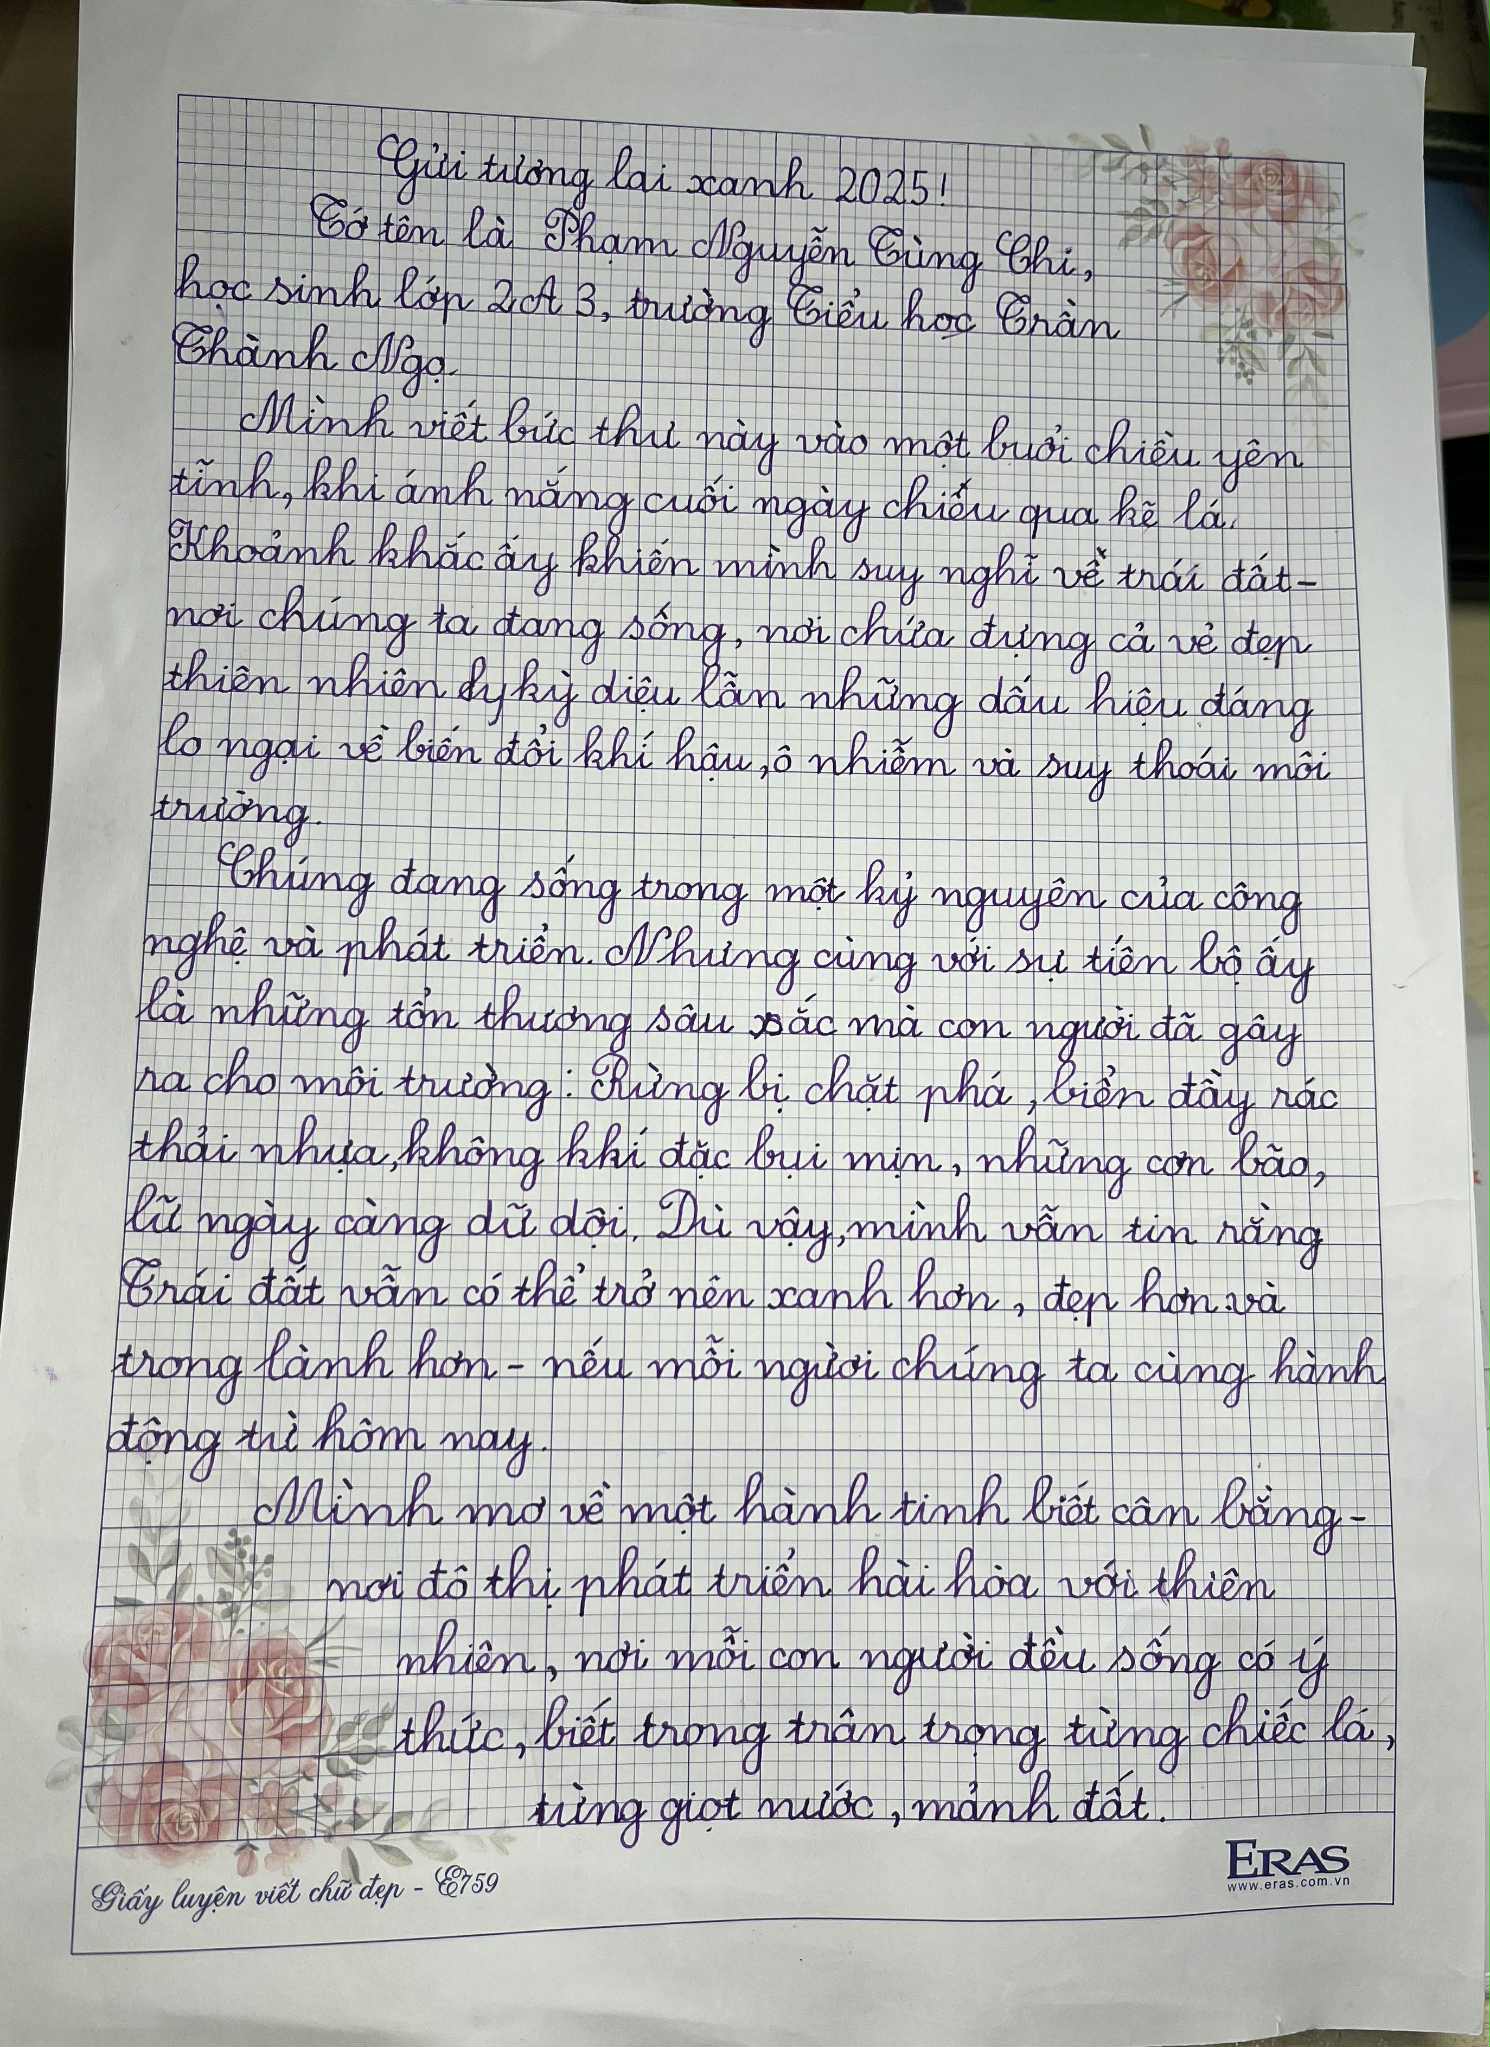 Gửi tương lai xanh 2025!
Tớ tên là Phạm Nguyễn Tùng Chi,
học sinh lớp 2A3, trường Tiểu học Trần
Thành Ngọ.
Mình viết bức thư này vào một buổi chiều yên
tĩnh, khi ánh nắng cuối ngày chiếu qua kẽ lá.
Khoảnh khắc ấy khiến mình suy nghĩ về trái đất-
nơi chúng ta đang sống, nơi chứa đựng cả vẻ đẹp
thiên nhiên kỳ diệu lẫn những dấu hiệu đáng
lo ngại về biến đổi khí hậu, ô nhiễm và suy thoái môi
trường.
Chúng đang sống trong một kỷ nguyên của công
nghệ và phát triển. Nhưng cùng với sự tiến bộ ấy
là những tổn thương sâu sắc mà con người đã gây
ra cho môi trường: Rừng bị chặt phá, biển đầy rác
thải nhựa, không khí đặc bụi mịn, những cơn bão,
lũ ngày càng dữ dội. Dù vậy, mình vẫn tin rằng
Trái đất vẫn có thể trở nên xanh hơn, đẹp hơn và
trong lành hơn - nếu mỗi người chúng ta cùng hành
động từ hôm nay.
Mình mơ về một hành tinh biết cân bằng -
nơi đô thị phát triển hài hòa với thiên
nhiên, nơi mỗi con người đều sống có ý
thức, biết trong trân trọng từng chiếc lá,
từng giọt nước, mảnh đất.
ERAS
www.eras.com.vn
Giấy luyện viết chữ đẹp - E759